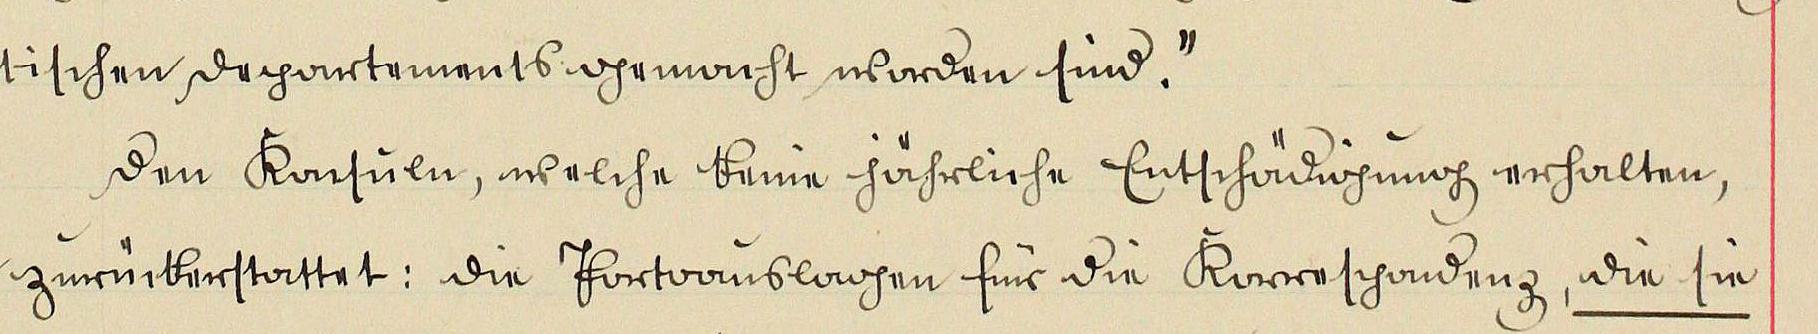 tischen Departements gemacht worden sind."
Den Konsuln, welche keine jährliche Entschädigung erhalten,
zurückerstattet: die Portoauslagen für die Korrespondenz, die sie